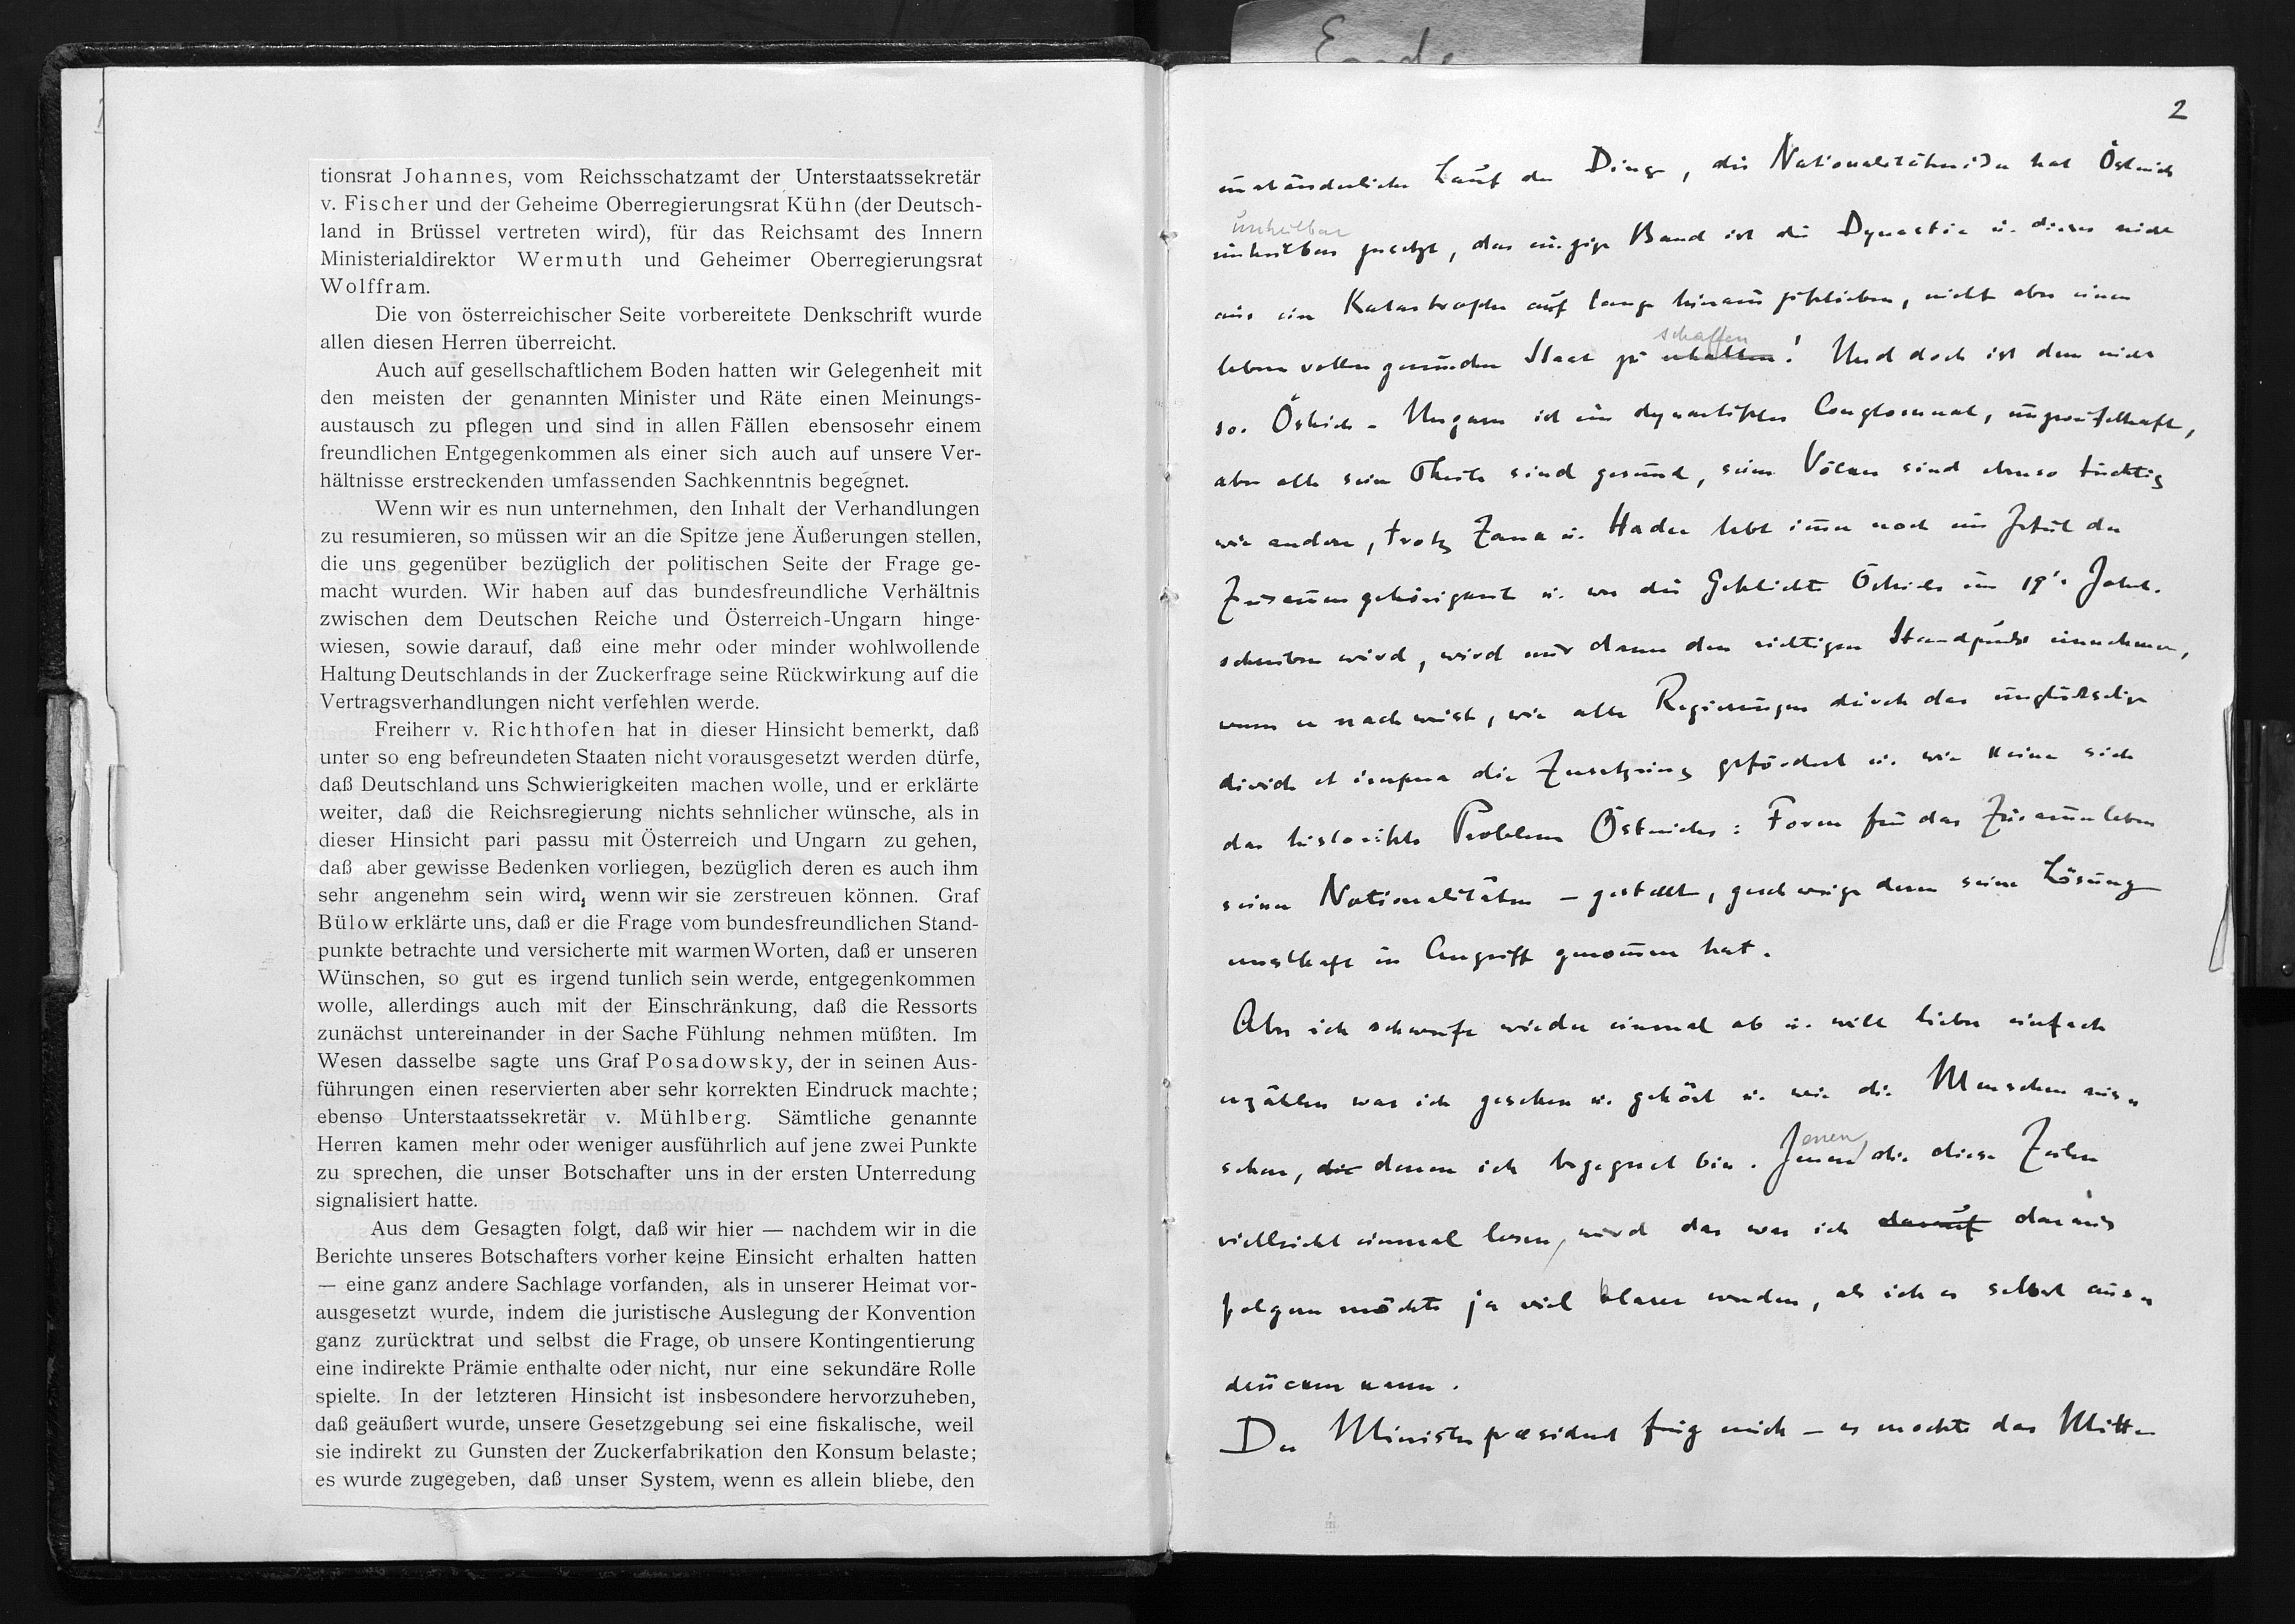 tionsrat Johannes, vom Reichsschatzamt der Unterstaatssekretär
v. Fischer und der Geheime Oberregierungsrat Kühn (der Deutsch-
land in Brüssel vertreten wird), für das Reichsamt des Innern
Ministerialdirektor Wermuth und Geheimer Oberregierungsrat
Wolffram.
Die von österreichischer Seite vorbereitete Denkschrift wurde
allen diesen Herren überreicht.
Auch auf gesellschaftlichem Boden hatten wir Gelegenheit mit
den meisten der genannten Minister und Räte einen Meinungs-
austausch zu pflegen und sind in allen Fällen ebensosehr einem
freundlichen Entgegenkommen als einer sich auch auf unsere Ver-
hältnisse erstreckenden umfassenden Sachkenntnis begegnet.
Wenn wir es nun unternehmen, den Inhalt der Verhandlungen
zu resumieren, so müssen wir an die Spitze jene Äußerungen stellen,
die uns gegenüber bezüglich der politischen Seite der Frage ge-
macht wurden. Wir haben auf das bundesfreundliche Verhältnis
zwischen dem Deutschen Reiche und Österreich-Ungarn hinge-
wiesen, sowie darauf, daß eine mehr oder minder wohlwollende
Haltung Deutschlands in der Zuckerfrage seine Rückwirkung auf die
Vertragsverhandlungen nicht verfehlen werde.
Freiherr v. Richthofen hat in dieser Hinsicht bemerkt, daß
unter so eng befreundeten Staaten nicht vorausgesetzt werden dürfe,
daß Deutschland uns Schwierigkeiten machen wolle, und er erklärte
weiter, daß die Reichsregierung nichts sehnlicher wünsche, als in
dieser Hinsicht pari passu mit Österreich und Ungarn zu gehen,
daß aber gewisse Bedenken vorliegen, bezüglich deren es auch ihm
sehr angenehm sein wird, wenn wir sie zerstreuen können. Graf
Bülow erklärte uns, daß er die Frage vom bundesfreundlichen Stand-
punkte betrachte und versicherte mit warmen Worten, daß er unseren
Wünschen, so gut es irgend tunlich sein werde, entgegenkommen
wolle, allerdings auch mit der Einschränkung, daß die Ressorts
zunächst untereinander in der Sache Fühlung nehmen müßten. Im
Wesen dasselbe sagte uns Graf Posadowsky, der in seinen Aus-
führungen einen reservierten aber sehr korrekten Eindruck machte;
ebenso Unterstaatssekretär v. Mühlberg. Sämtliche genannte
Herren kamen mehr oder weniger ausführlich auf jene zwei Punkte
zu sprechen, die unser Botschafter uns in der ersten Unterredung
signalisiert hatte.
Aus dem Gesagten folgt, daß wir hier — nachdem wir in die
Berichte unseres Botschafters vorher keine Einsicht erhalten hatten
— eine ganz andere Sachlage vorfanden, als in unserer Heimat vor-
ausgesetzt wurde, indem die juristische Auslegung der Konvention
ganz zurücktrat und selbst die Frage, ob unsere Kontingentierung
eine indirekte Prämie enthalte oder nicht, nur eine sekundäre Rolle
spielte. In der letzteren Hinsicht ist insbesondere hervorzuheben,
daß geäußert wurde, unsere Gesetzgebung sei eine fiskalische, weil
sie indirekt zu Gunsten der Zuckerfabrikation den Konsum belaste;
es wurde zugegeben, daß unser System, wenn es allein bliebe, den
2
unabänderlicher Lauf der Dinge, die Nationalitätenidee hat Östreich
unheilbar
unheilbar zersetzt, das einzige Band ist die Dynastie u. dieses nicht
aus eine Katastrophe auf lange hinauszuschieben, nicht aber einen
schaffen
lebensvollen gesunden Staat zu erhalten! Und doch ist dem nicht
so. Östreich-Ungarn ist ein dynastisches Conglomerat, unzweifelhaft,
aber alle seine Theile sind gesund, seine Völker sind ebenso tüchtig
wie andere, trotz Zank u. Hader lebt immer noch ein Gefühl der
Zusammengehörigkeit u. wer die Geschichte Östreichs im 19t. Jahrh.
schreiben wird, wird nur dann den richtigen Standpunkt einnehmen,
wenn er nachweist, wie alle Regierungen durch das unglückselige
divide et impera die Zersetzung gefördert u. wie keine sich
das historische Problem Östreichs: Form für das Zusammenleben
seiner Nationalitäten – gestellt, geschweige denn seine Lösung
ernsthaft in Angriff genommen hat.
Aber ich schweife wieder einmal ab u. will lieber einfach
erzählen was ich gesehen u. gehört u. wie die Menschen aus-
sehen, die denen ich begegnet bin. Jenen, die diese Zeilen
enen
vielleicht einmal lesen, wird das was ich darauf daraus
folgern möchte ja viel klarer werden, als ich es selbst aus-
drücken kann.
Der Ministerpraesident frug mich – es mochte das Mitte